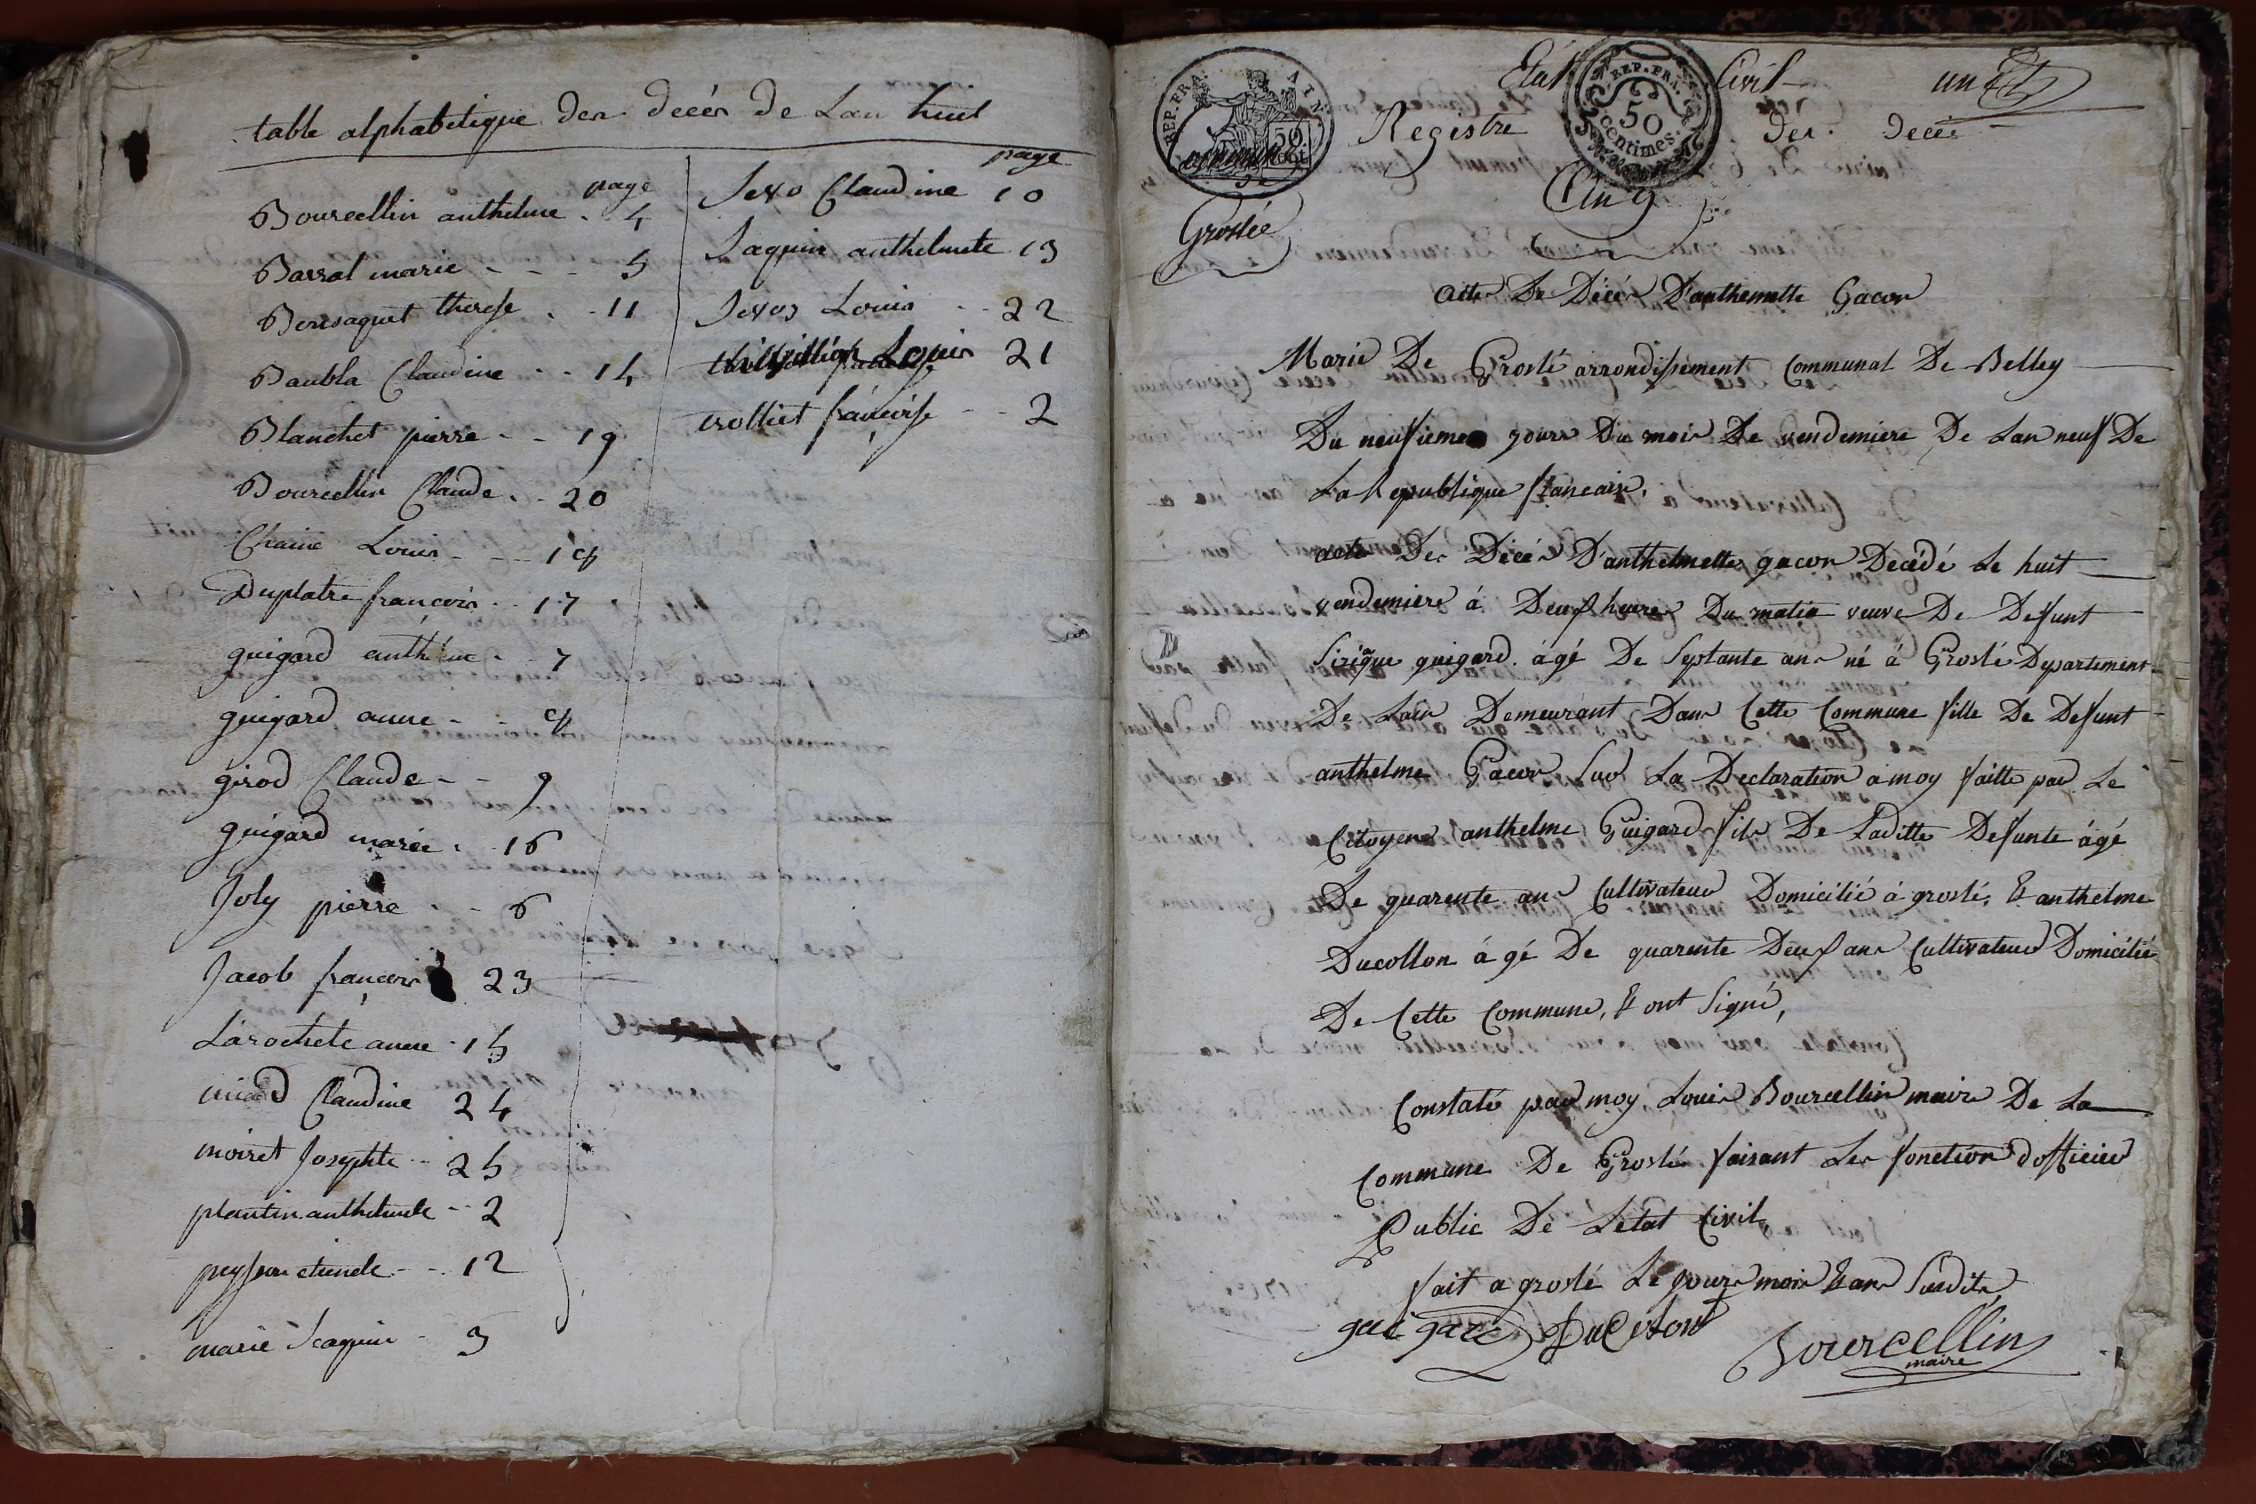 table alphabetique des decés de Lan huit
page
Bourcellin anthelme - 4
Barral marie - - - 5
Bonsaquet therese - - 11
Baubla Claudine - - 14
Blanchet pierre - - 19
Bourcellin Claude - - 20
Chaine Louis - - - 18
Duplatre francois - - 17
guigard anthelme - - 7
guigard anne - - 8
girod Claude - - 9
guigard marie - 16
Joly pierre - - 6
Jacob francois 23
Larochete anne - 15
miard Claudine 24
moiret Josephte - - 25
plantin anthelmete - - 2
peysson etiende - - 12
marie Seaquin - 3
page
Sevo Claudine 10
Saquin anthelmete 13
Sevoz Louis - - 22
Louis 21
trolliet francoise - - 2
Etat Civil un
REP. FRA.
50 Cent.
REP. FRA.
50
centimes.
Registre des decés
Commune
de
Groslée
Cinq
Acte De Décés D'anthemette Gacon
Marie De Groslé arrondissement Communal De Belley
Du neufsieme jours Du mois De vendemiere De Lan neuf De
La Republique francaise,
acte Des Décés D'anthelmette gacon Decédé Le huit
vendemiere á Deux heures Du matin veuve De Defunt
Sirique guigard ágé De Septante ans né á Groslé Departement
De Lain Demeurant Dans Cette Commune fille De Defunt
anthelme Gacon Sur La Declaration a moy faitte par Le
Citoyens anthelme Guigard fils De Laditte Defunte ágé
De quarente ans Cultivateur Domicilié á groslé, & anthelme
Ducollon ágé De quarente Deux ans Cultivateur Domicilié
De Cette Commune, & ont Signé,
Constaté par moy, Louis Bourcellin maire De La
Commune De Groslé faisant Les fonction dofficier
Public De Letat Civil,
fait a groslé Le jours mois & ans Susdits
guigard DuColon Bourcellin
maire